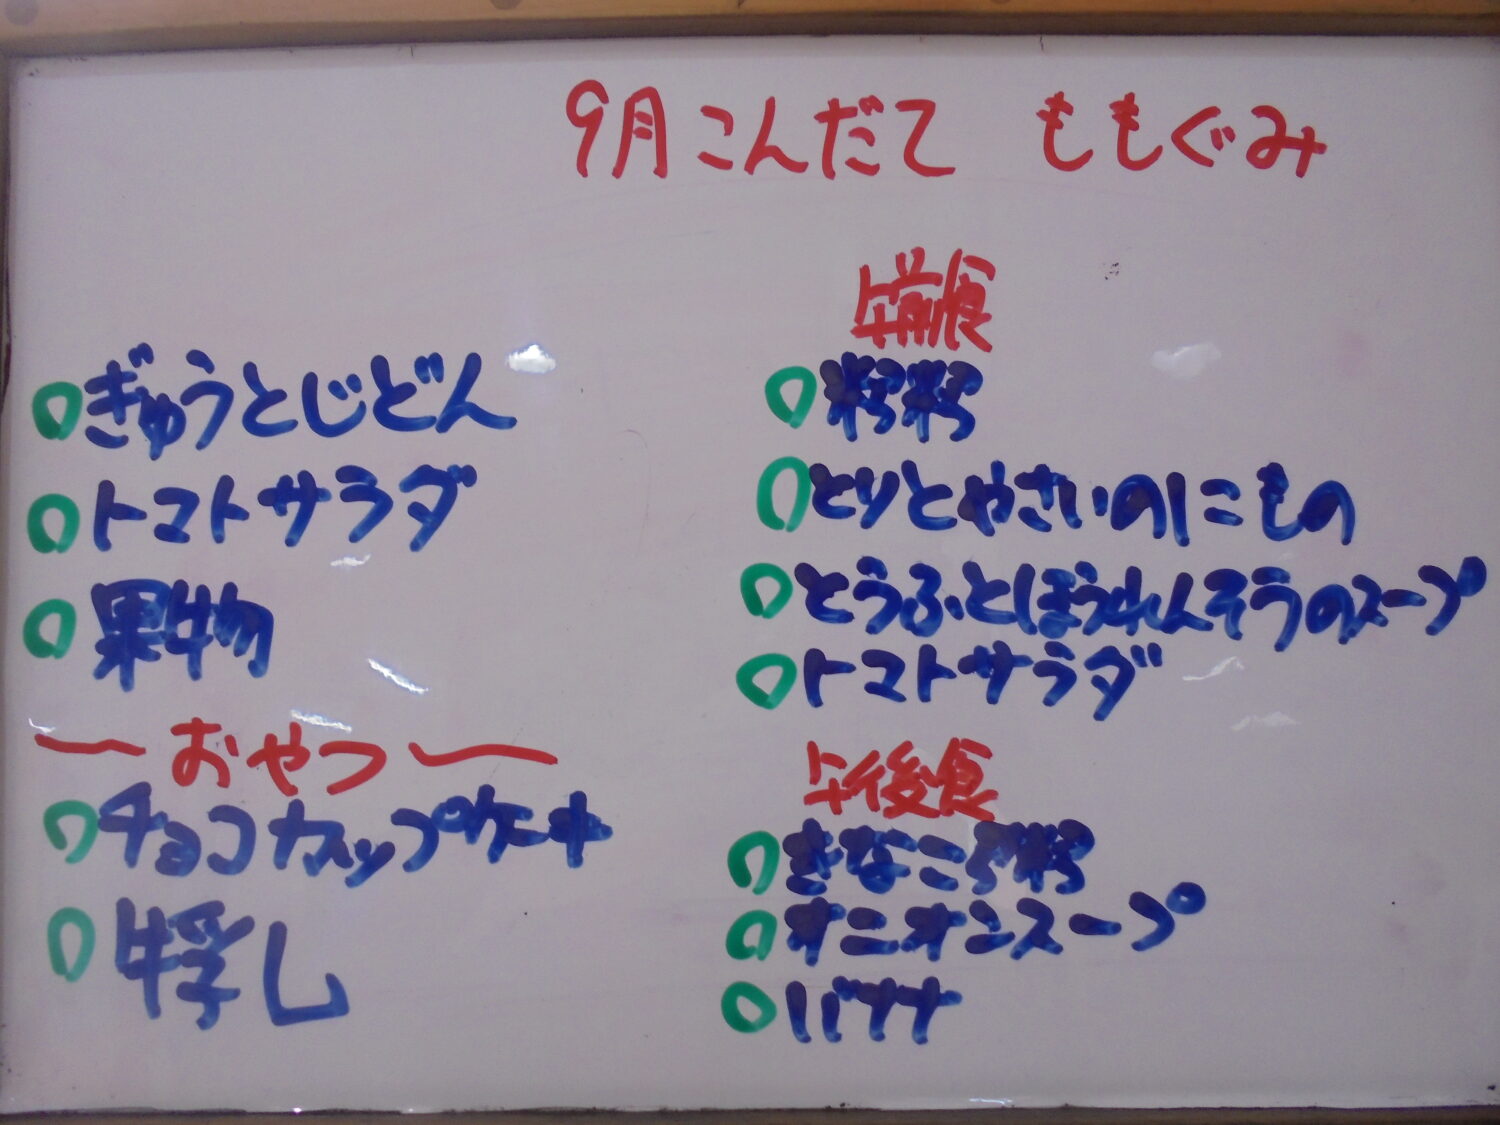 9月こんだて ももぐみ
ぎゅうとじどん
トマトサラダ
果物
〜おやつ〜
チョコカップケーキ
牛乳
午前食
粥
とりとやさいのにもの
とうふとほうれんそうのスープ
トマトサラダ
午後食
きなこ粥
オニオンスープ
バナナ